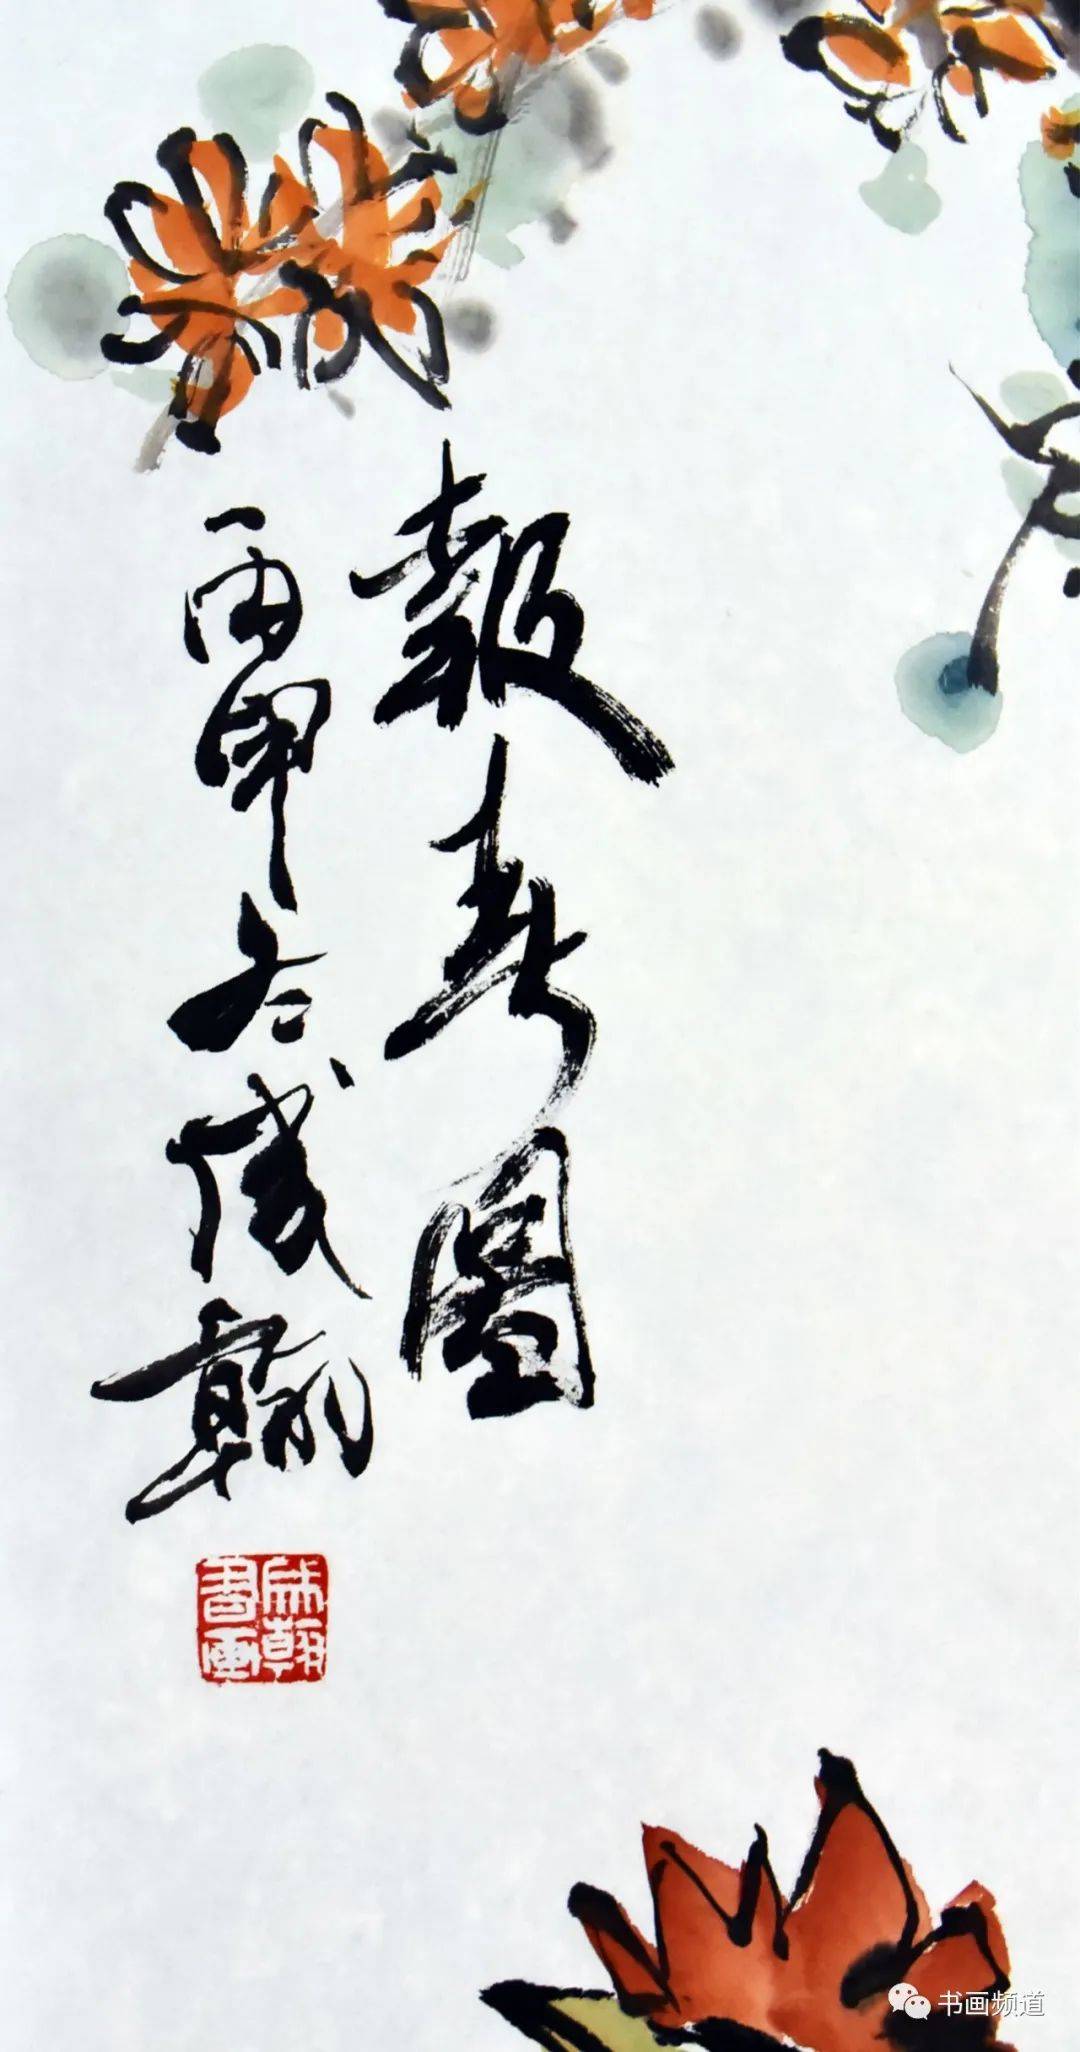 報春圖
丙申冬成翰
成翰書画
书画频道